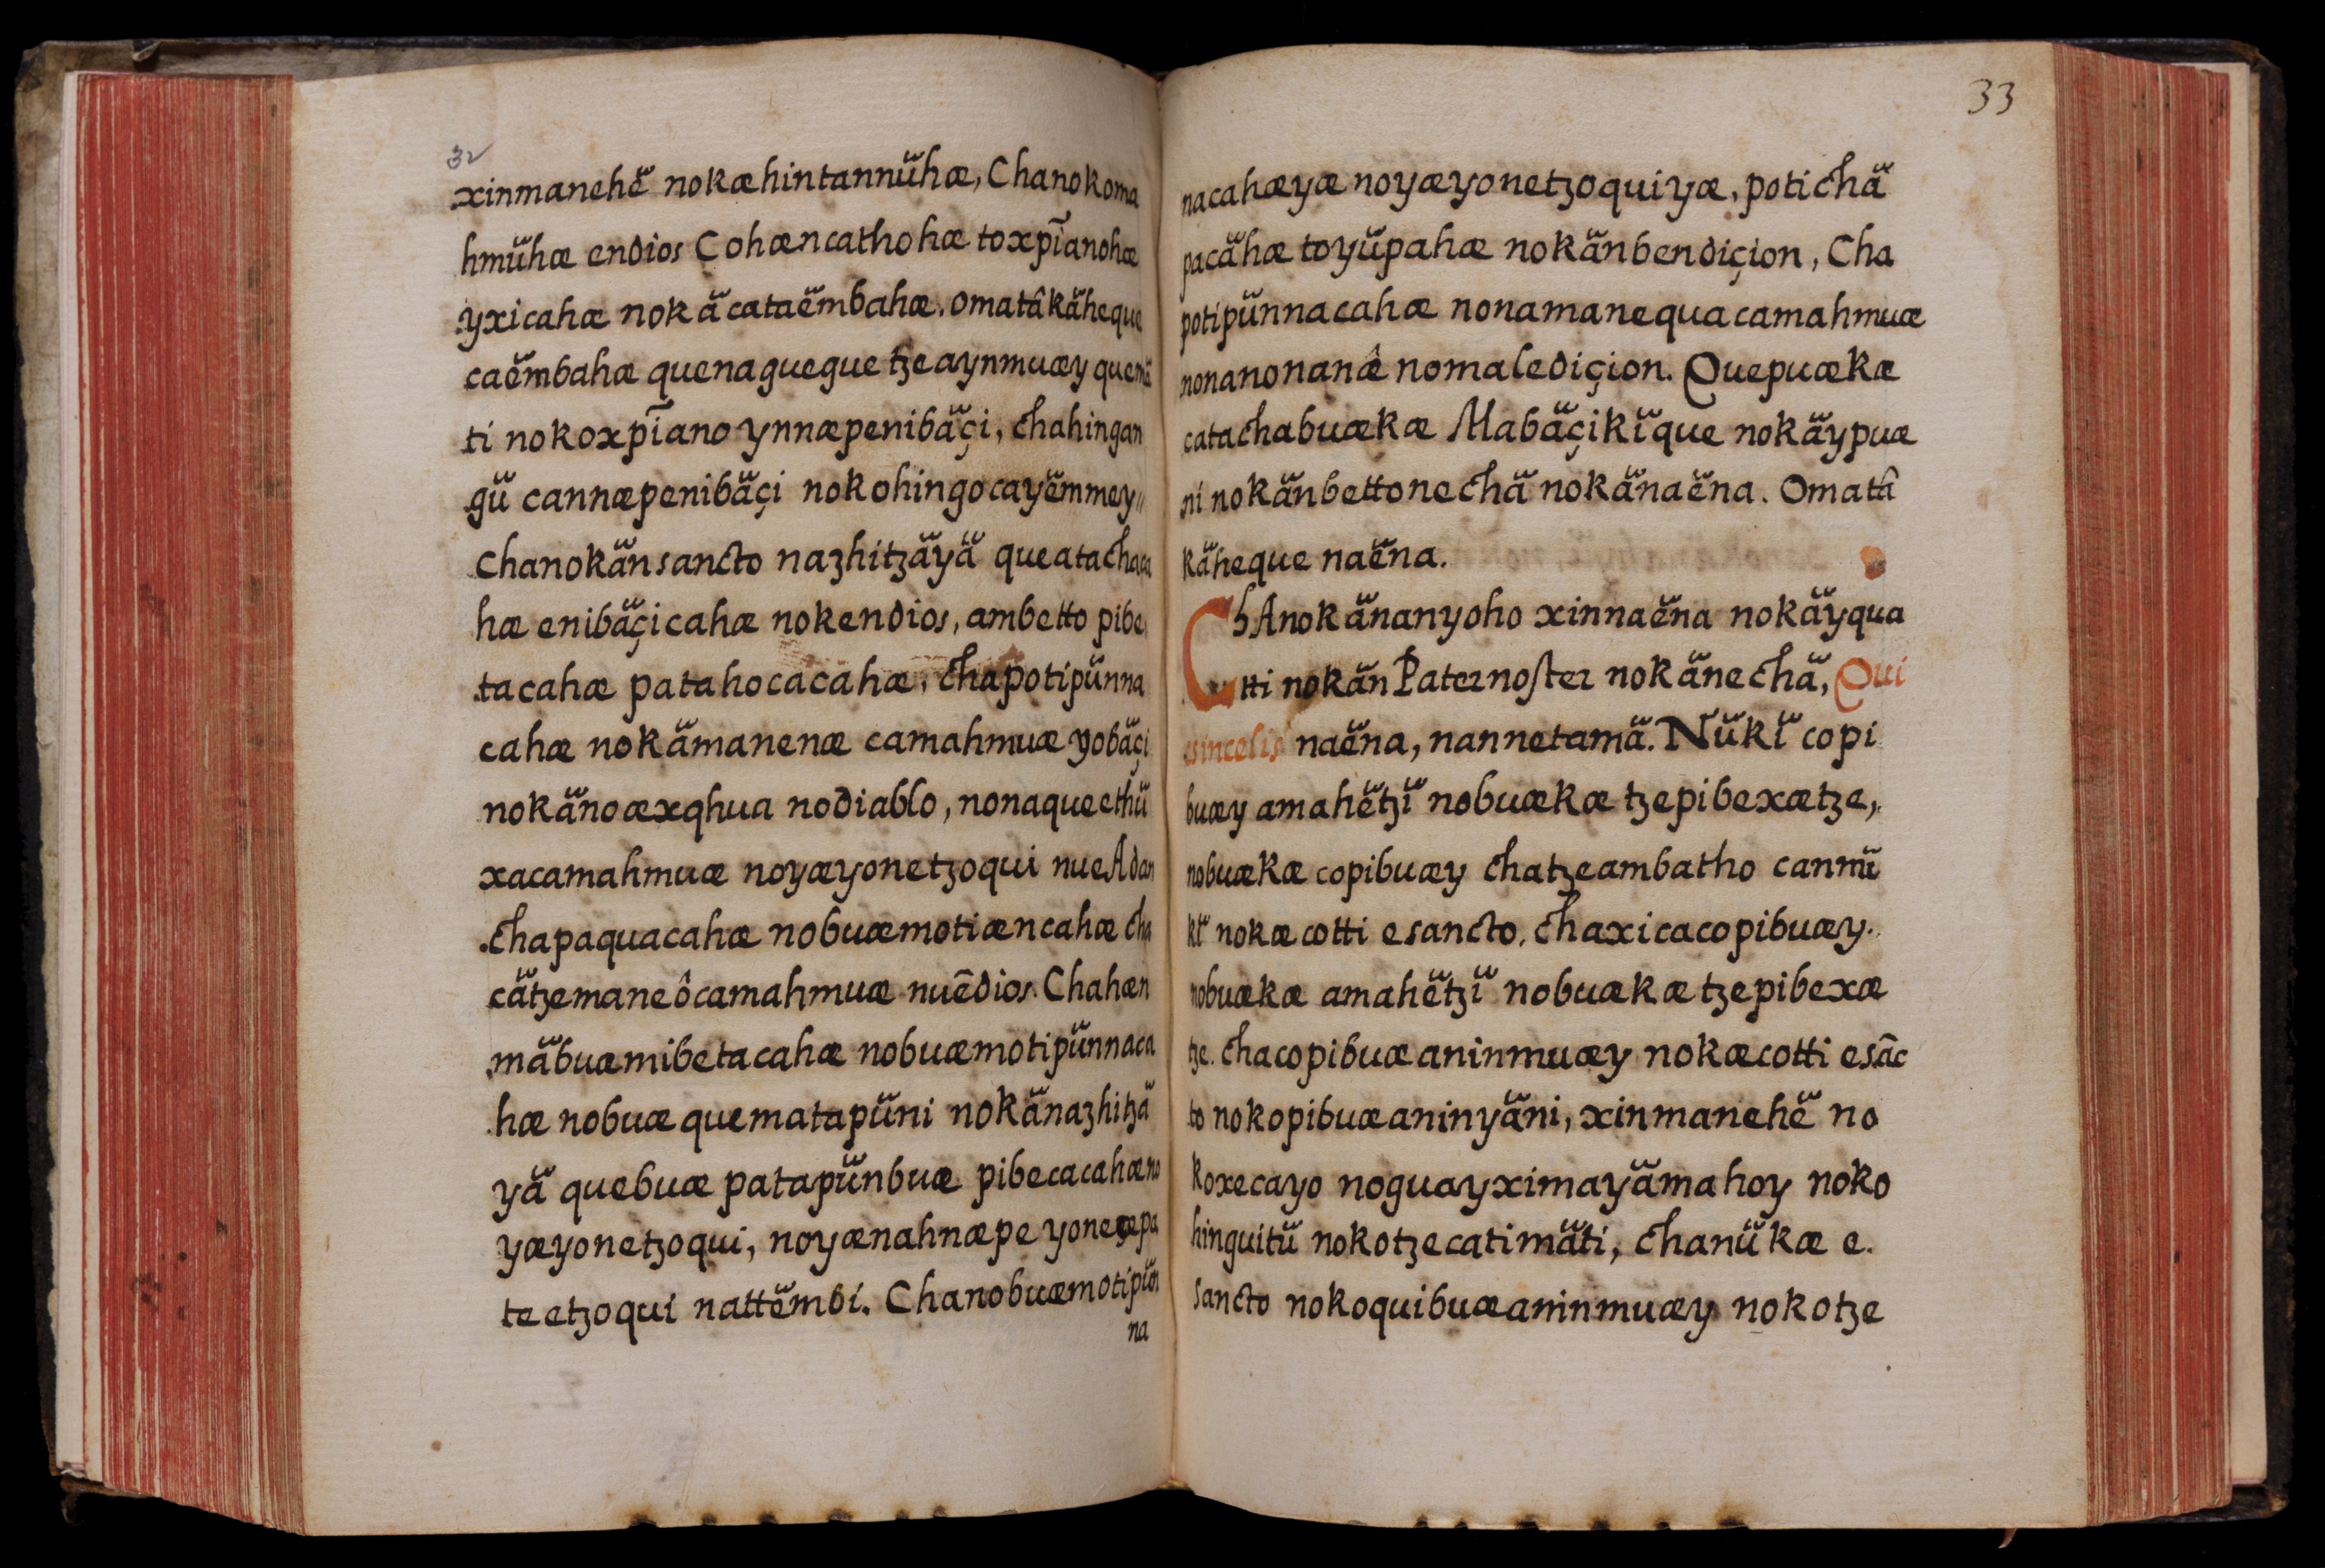 32
xinmanehë nokæhintannühæ, Chanokoma
hmühæ endios Çohæncathohæ toxp̄ianohæ
yxicahæ nokäcataëmbahæ. omatâkäheque
caëmbahæ quenaguegue tzeaynmuæy quemä
ti nokoxp̄iano ynnæpenibäçi, chahingan
gü cannæpenibäçi nokohingocayëmmey
Chanokänsancto nazhitzäyä queatachaca
hæ enibäçicahæ nokendios, ambetto pibe
tacahæ patahocacahæ, chapotipünna
cahæ nokämanenæ camahmuæ yobäçi
nokänoæxqhua nodiablo, nonaqueethü
xacamahmuæ noyæyonetzoqui nueAdan
chapaquacahæ nobuæmotiæncahæ cha
cätzemaneôcamahmuæ nuēdios. Chahæn
mäbuæmibetacahæ nobuæmotipünnaca
hæ nobuæquematapüni nokänazhitzä
yä quebuæ patapünbuæ pibecacahæno
yæyonetzoqui, noyænahnæpe yoneæpa
teetzoqui nattëmbi. Chanobuæmotipün
na
33
nacahæyæ noyæyonetzoquiyæ, potichä
pacähæ toyüpahæ nokänbendiçion, Cha
potipünnacahæ nonamanequacamahmuæ
nonanonanê nomalediçion. Quepuækæ
catachabuækæ Mabäçikïque nokäypuæ
ni nokänbettonechä nokänaëna. Omatâ
käheque naëna.
ChAnokänanyoho xinnaëna nokäyqua
tti nokän Paternoster nokänechä, Qui
esincelis naëna, nannetamä. Nükï copi
buæy amahëtzï nobuækæ tzepibexætze,
nobuækæ copibuæy chatzeambatho cannü
kï nokæcotti esancto, chaxicacopibuæy.
nobuækæ amahëtzï nobuækætzepibexæ
tze. chacopibuæaninmuæy nokæcotti esāc
to nokopibuæaninyäni, xinmanehë no
koxecayo noguayximayämahoy noko
hinguitü nokotzecatimäti, chanükæ e.
sancto nokoquibuæaninmuæy nokotze